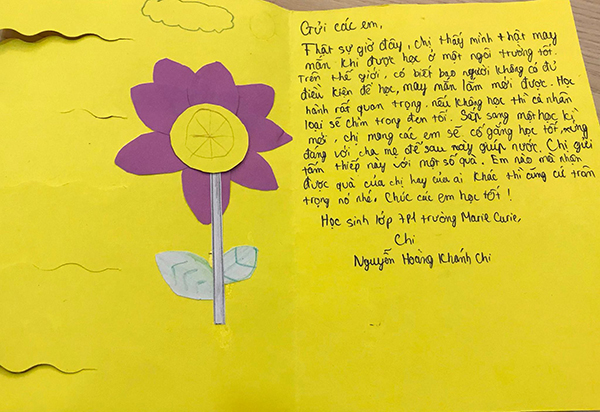 Gửi các em,
Thật sự giờ đây, chị thấy mình thật may
mắn khi được học ở một ngôi trường tốt.
Trên thế giới, có biết bao người không có đủ
điều kiện để học, may mắn lắm mới được. Học
hành rất quan trọng, nếu không học thì cả nhân
loại sẽ chìm trong đen tối. Sắp sang một học kì
mới, chị mong các em sẽ cố gắng học tốt, xứng
đáng với cha mẹ để sau này giúp nước. Chị gửi
tấm thiếp này với một số quà. Em nào mà nhận
được quà của chị hay của ai khác thì cũng cứ trân
trọng nó nhé. Chúc các em học tốt!
Học sinh lớp 7P1 trường Marie Curie,
Chi
Nguyễn Hoàng Khánh Chi